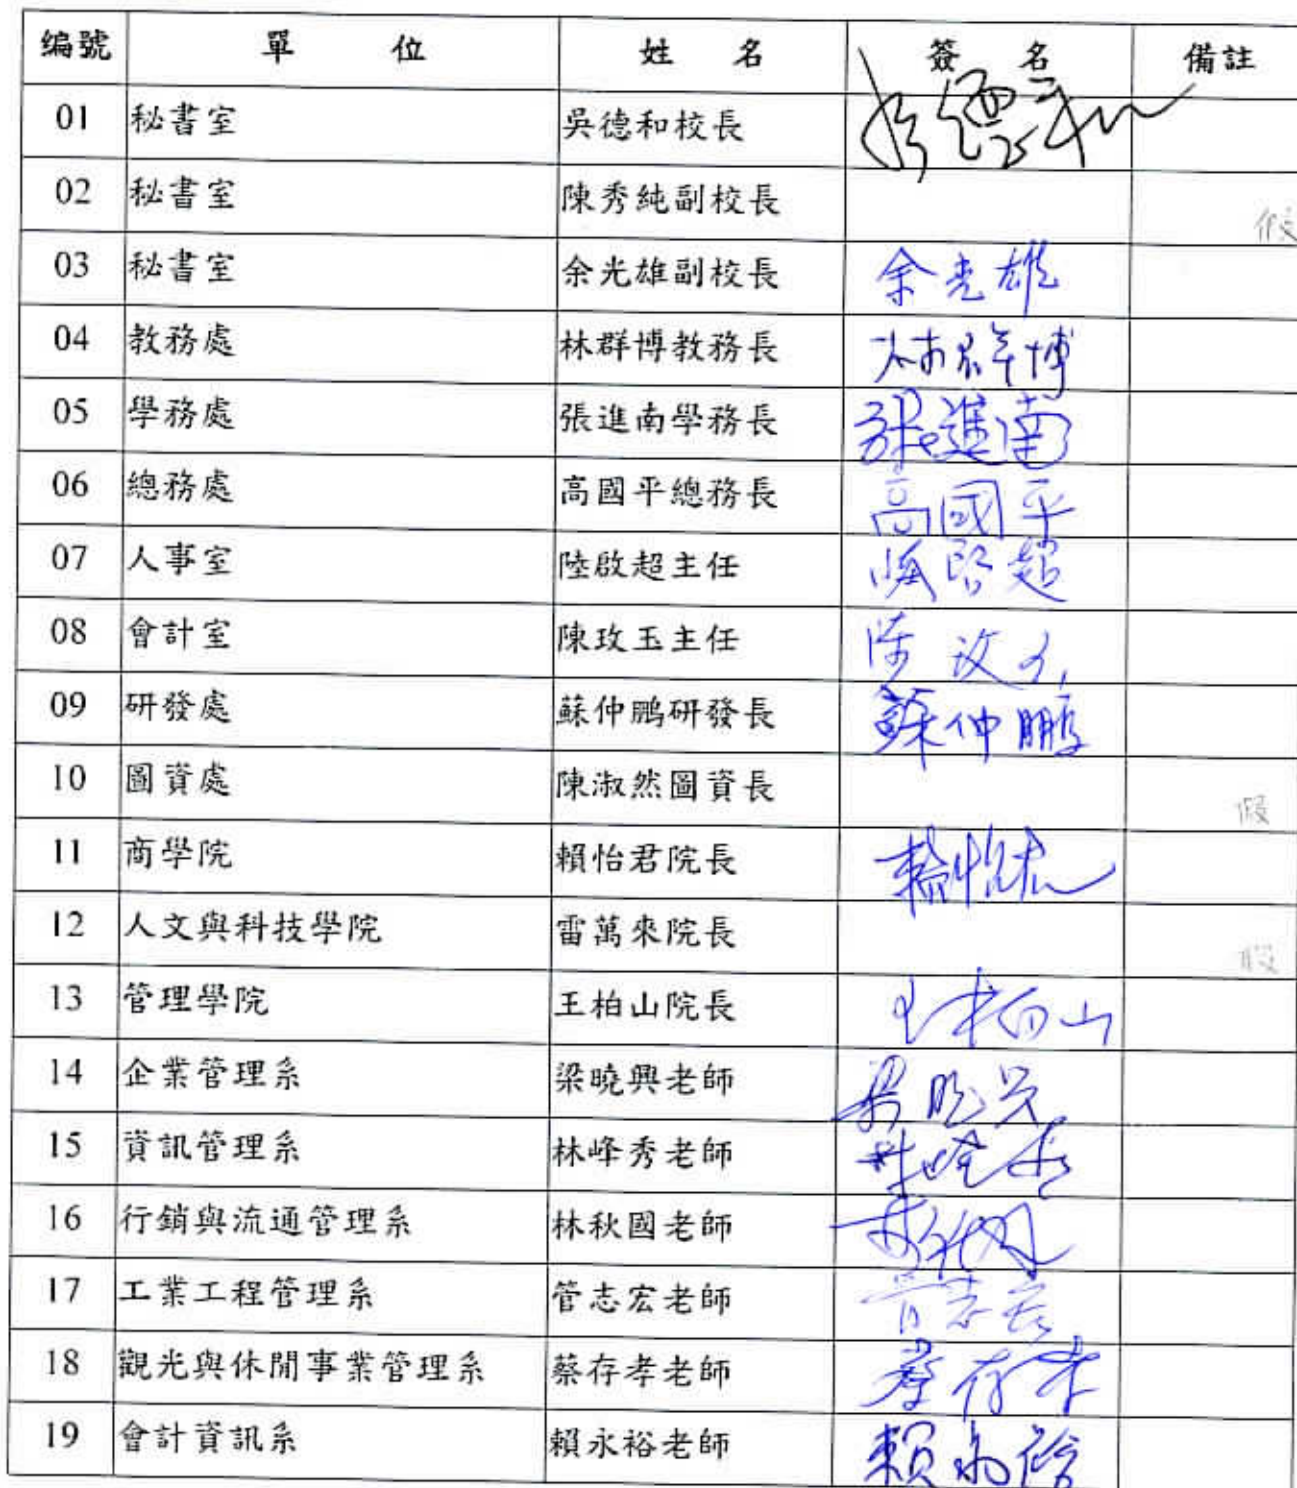 编號 單 位 姓 名 簽 名 備註
01 秘書室 吳德和校長 吳德和
02 秘書室 陳秀純副校長 假
03 秘書室 余光雄副校長 余光雄
04 教務處 林群博教務長 林群博
05 學務處 張進南學務長 張進南
06 總務處 高國平總務長 高國平
07 人事室 陸啟超主任 陸啟超
08 會計室 陳玫玉主任 陳玫玉
09 研發處 蘇仲鵬研發長 蘇仲鵬
10 圖資處 陳淑然圖資長 假
11 商學院 賴怡君院長 賴怡君
12 人文與科技學院 雷萬來院長 假
13 管理學院 王柏山院長 王柏山
14 企業管理系 梁曉興老師 梁曉興
15 資訊管理系 林峰秀老師 林峰秀
16 行銷與流通管理系 林秋國老師 林秋國
17 工業工程管理系 管志宏老師 管志宏
18 觀光與休閒事業管理系 蔡存孝老師 蔡存孝
19 會計資訊系 賴永裕老師 賴永裕